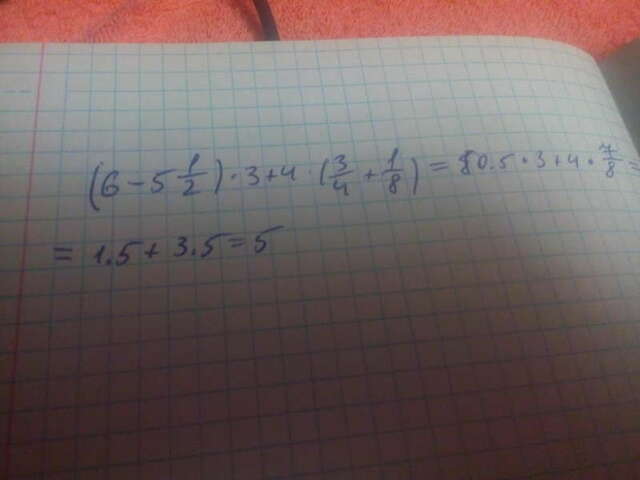 (6-5 1/2)·3+4·(3/4+1/8)=0.5·3+4·7/8=
=1.5+3.5=5